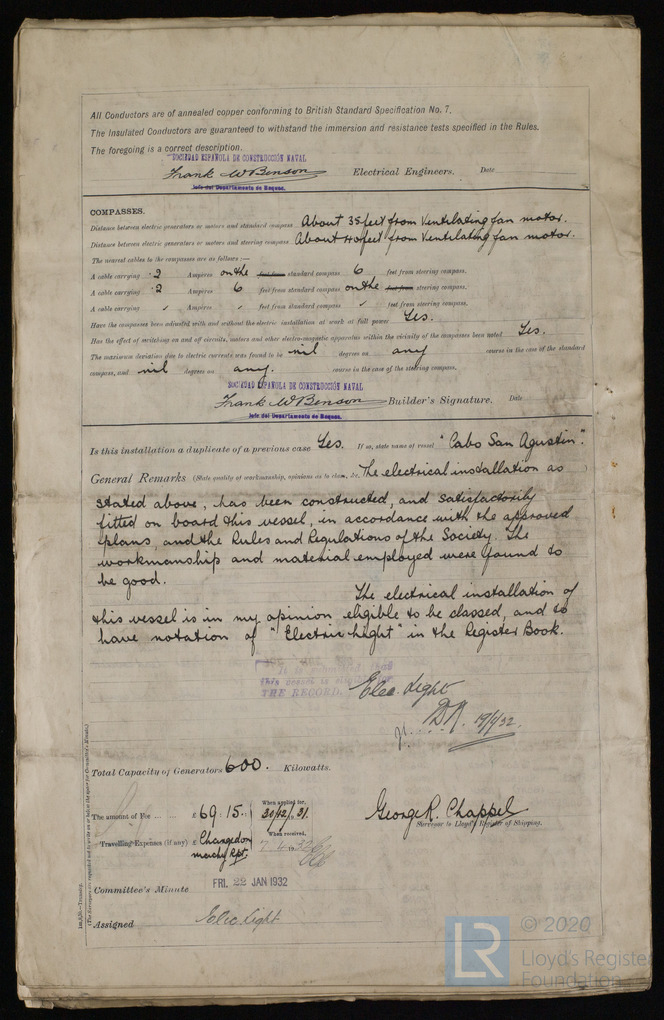 All Conductors are of annealed copper conforming to British Standard Specification No. 7.
The Insulated Conductors are guaranteed to withstand the immersion and resistance tests specified in the Rules.
The foregoing is a correct description.
SOCIEDAD ESPAÑOLA DE CONSTRUCCIÓN NAVAL
Frank W Benson Electrical Engineers. Date
Jefe del Departamento de Buques.
COMPASSES.
Distance between electric generators or motors and standard compass About 35 feet from Ventilating fan motor.
Distance between electric generators or motors and steering compass About 40 feet from Ventilating fan motor.
The nearest cables to the compasses are as follows:—
A cable carrying .2 Ampères on the standard compass 6 feet from steering compass.
A cable carrying .2 Ampères 6 feet from standard compass on the steering compass.
A cable carrying , Ampères , feet from standard compass , feet from steering compass.
Have the compasses been adjusted with and without the electric installation at work at full power Yes.
Has the effect of switching on and off circuits, motors and other electro-magnetic apparatus within the vicinity of the compasses been noted Yes.
The maximum deviation due to electric currents was found to be nil degrees on any course in the case of the standard
compass, and nil degrees on any. course in the case of the steering compass.
SOCIEDAD ESPAÑOLA DE CONSTRUCCIÓN NAVAL
Frank W Benson Builder's Signature. Date
Jefe del Departamento de Buques.
Is this installation a duplicate of a previous case Yes. If so, state name of vessel "Cabo San Agustin".
General Remarks (State quality of workmanship, opinions as to class, &c. The electrical installation as )
stated above, has been constructed, and satisfactorily
fitted on board this vessel, in accordance with the approved
plans, and the Rules and Regulations of the Society. The
workmanship and material employed were found to
be good.
The electrical installation of
this vessel is in my opinion eligible to be classed, and to
have notation of "Electric Light" in the Register Book.
this vessel is
THE RECORD.
Elec. Light
19/1/32.
Total Capacity of Generators 600. Kilowatts.
The amount of Fee ... ... £ 69 : 15. When applied for, 30/12/31.
George R. Chappel
Surveyor to Lloyd's Register of Shipping.
Travelling Expenses (if any) £ Charged on When received,
machy Rpt.
Committee's Minute FRI. 22 JAN 1932
Assigned Elec Light
© 2020
LR
Lloyd's Register
Foundation